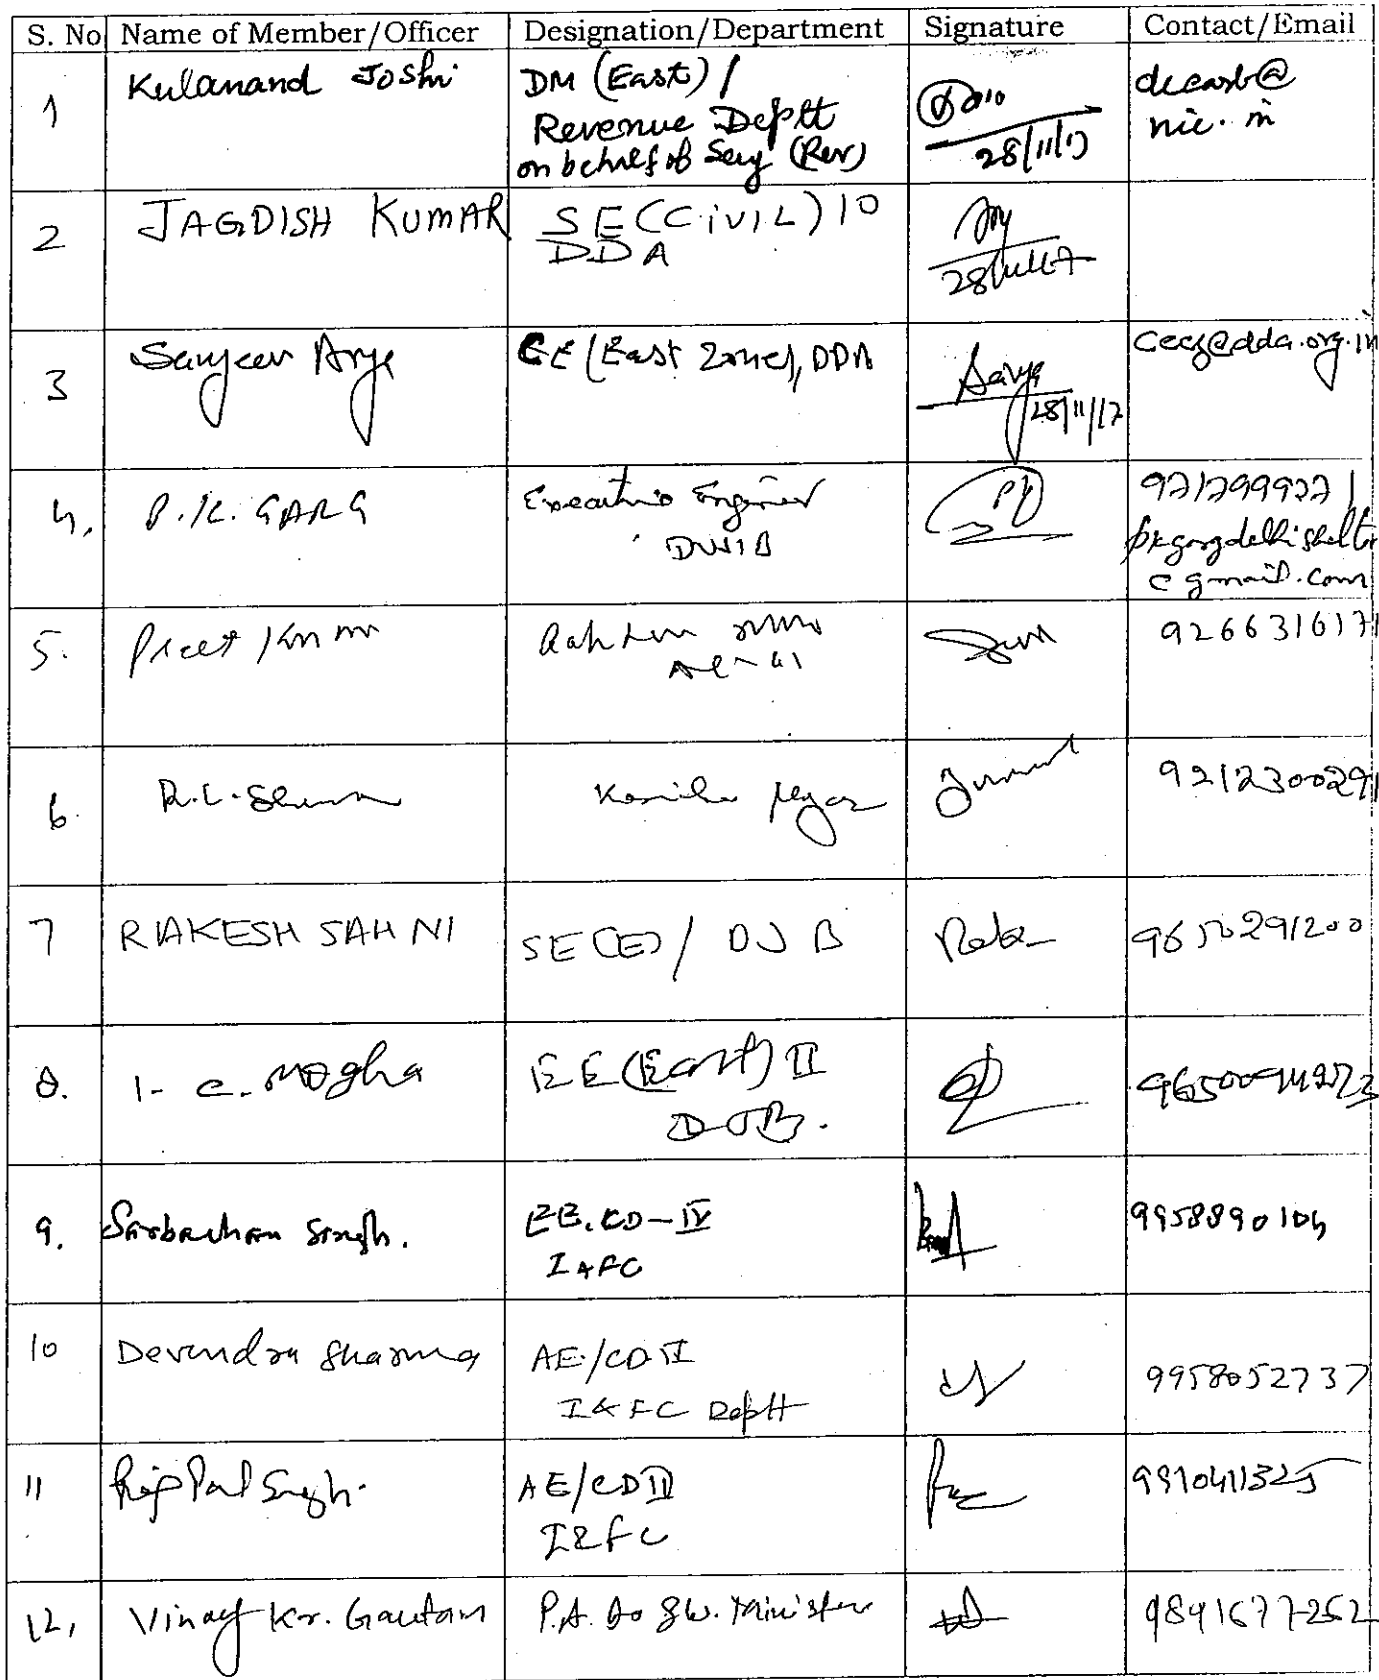 S. No Name of Member/Officer Designation/Department Signature Contact/Email
1 Kulanand Joshi DM (East) /
Revenue Deptt
on behalf of Secy (Rev)
28/11/17
nic.in
2 JAGDISH KUMAR SE (CiviL) 10
DDA
28/11/17
3 Sanjeev Arya CE (East Zone), DDA ceez@dda.org.in
28/11/17
4, P.K. GARG Executive Engineer
DUSIB
pkgargdelhishelter
@gmail.com
5. Preet 9266316171
6. R.L. 9212300291
7 RAKESH SAHNI SE (E) / DJB 9650291200
8. Mogha EE (East) II
DJB.
9. Sarbachan Singh. EE. CD-IV 9958890104
I&FC
10 Devendra Sharma AE/CD II 9958052737
I&FC Deptt
11 Raj Pal Singh. AE/CD II 9910411325
I&FC
12, Vinay Kr. Gautam P.A. to Minister 9891677252